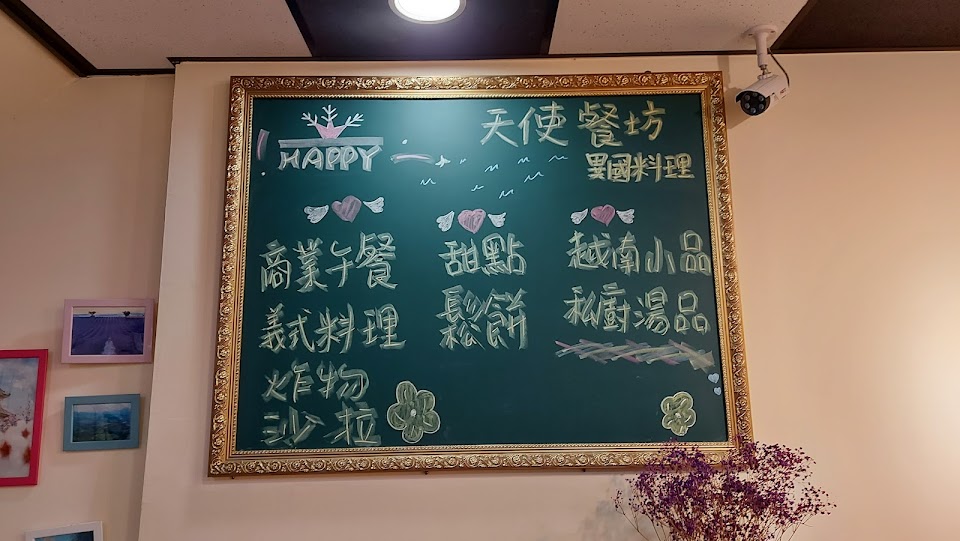 HAPPY
天使餐坊
異國料理
商業午餐
義式料理
炸物
沙拉
甜點
鬆餅
越南小品
私廚湯品